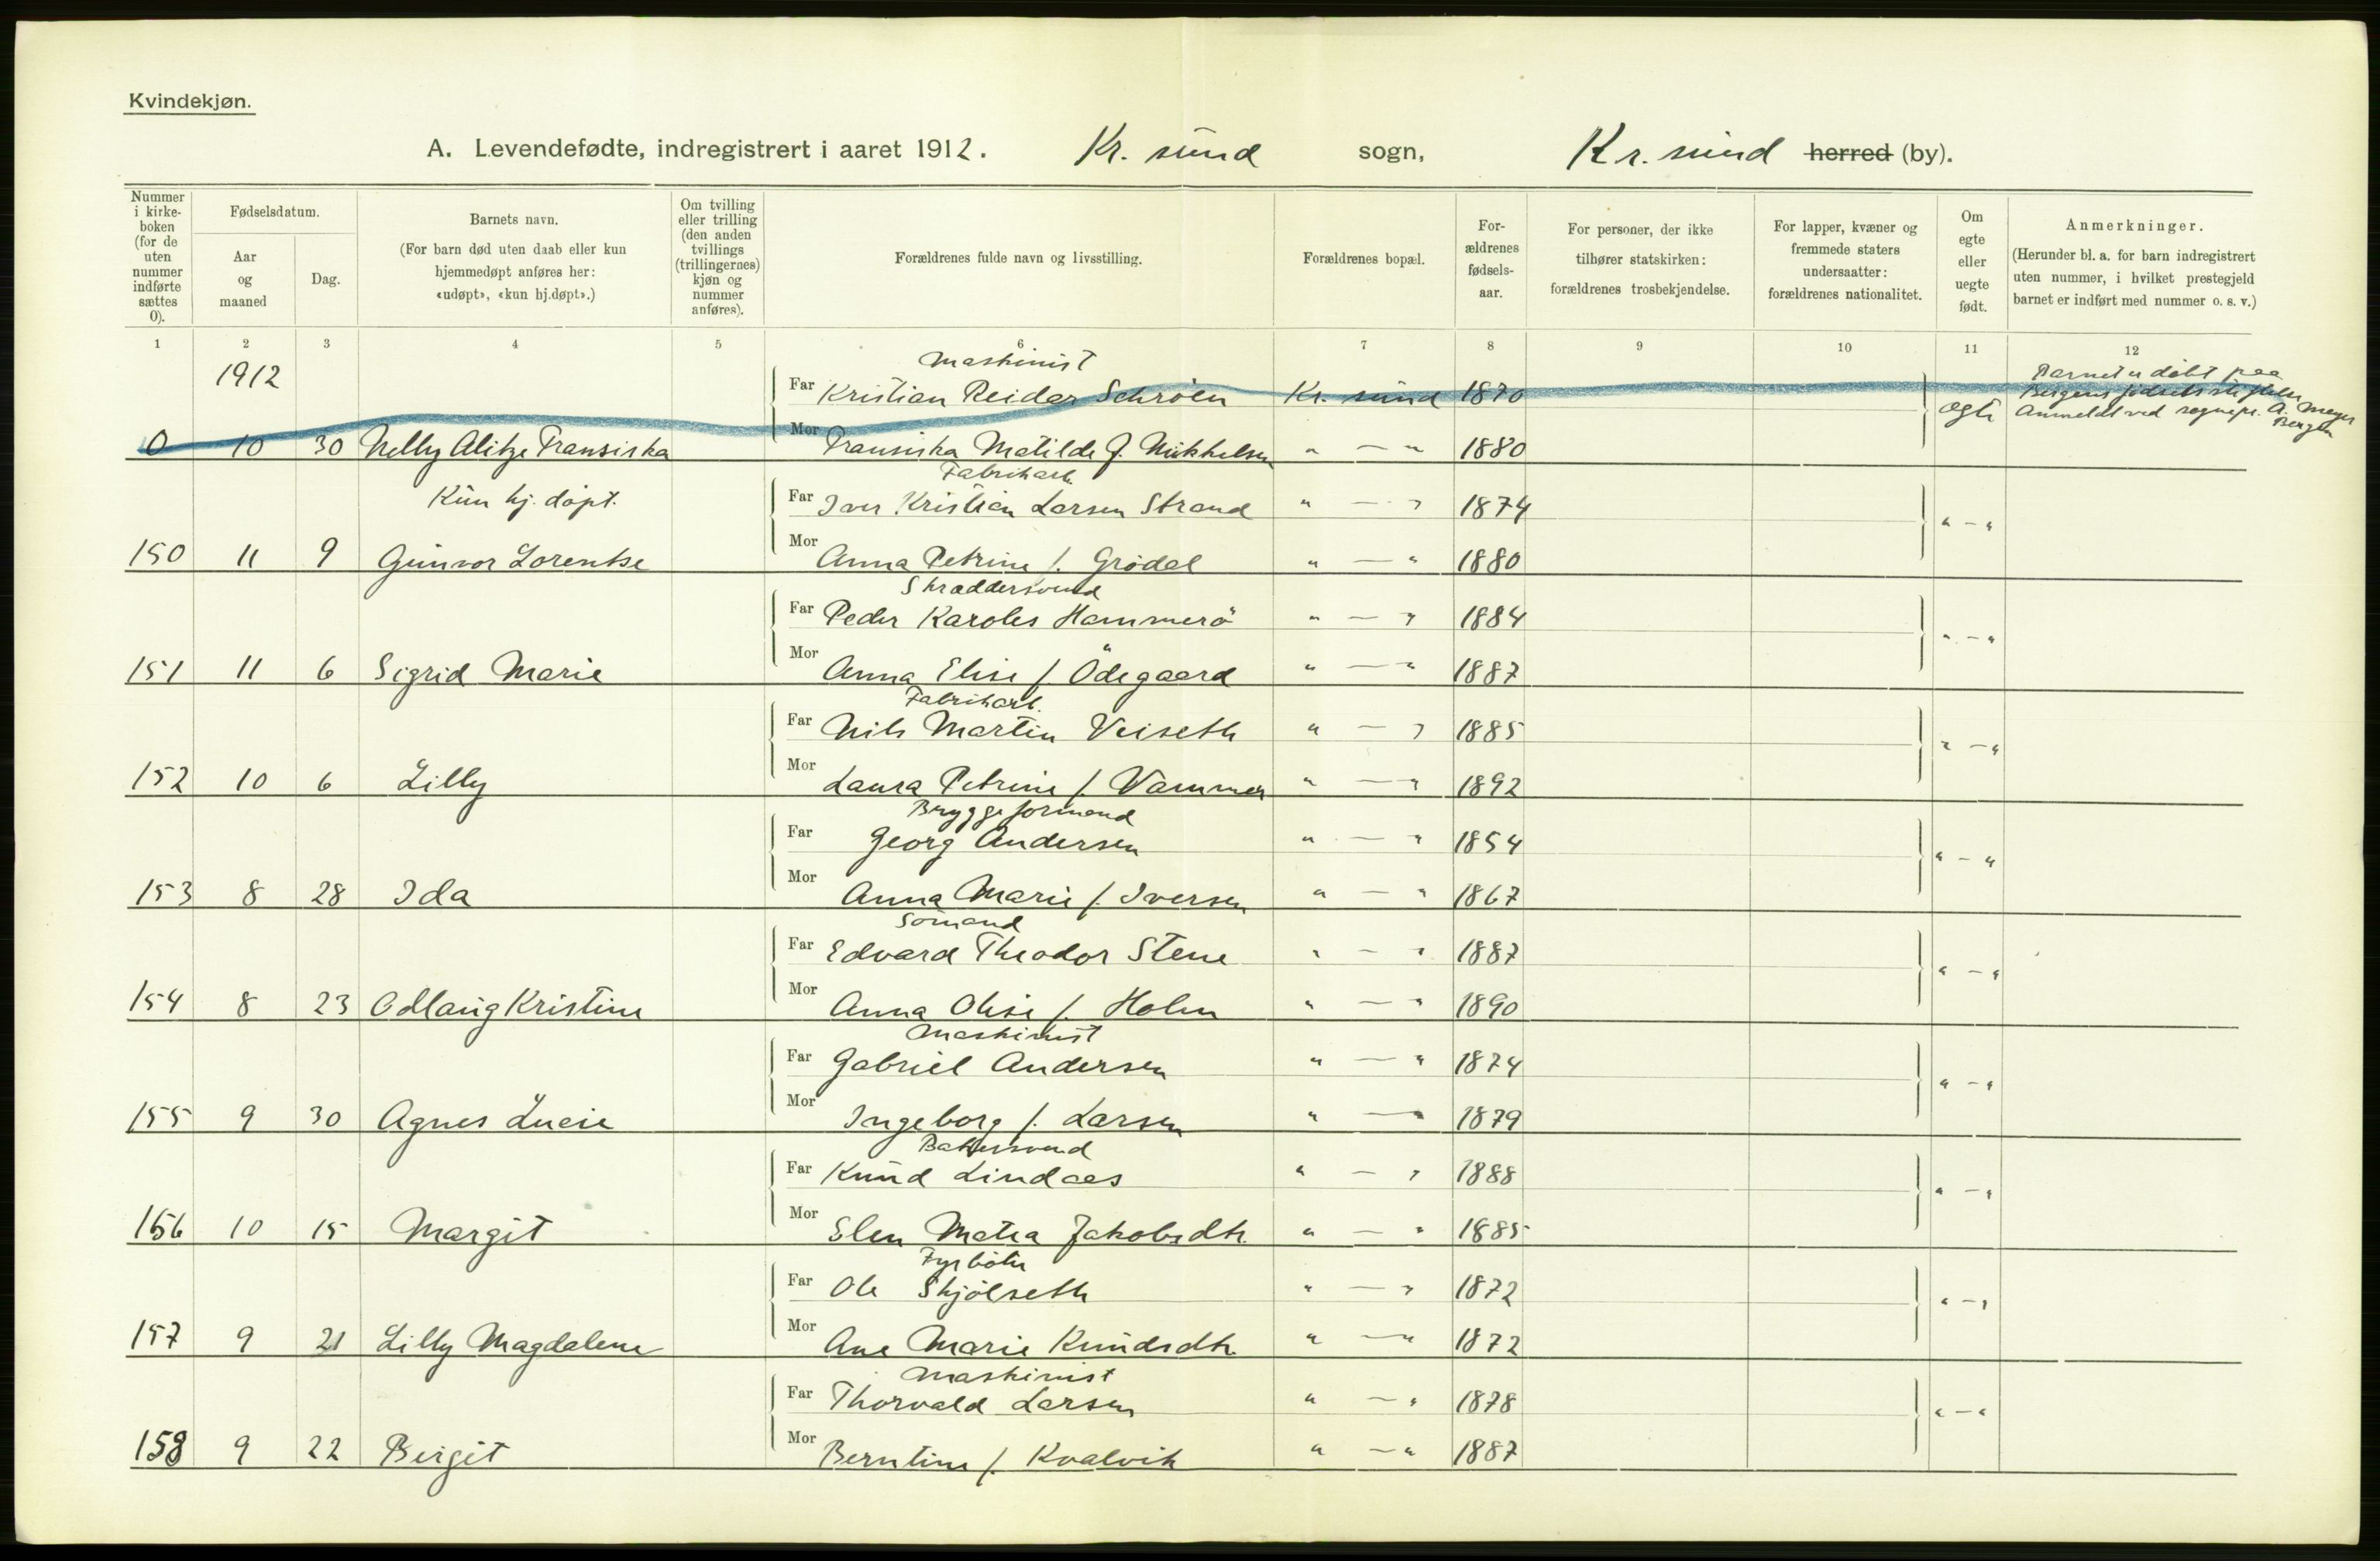 Kvindekjøn.
A. Levendefødte, indregistrert i aaret 1912. Kr. sund sogn, Kr. sund herred (by).
Nummer i kirkeboken (for de uten nummer indførte sættes 0).
Fødselsdatum.
Aar og maaned
Dag.
Barnets navn.
(For barn død uten daab eller kun hjemmedøpt anføres her: «udøpt», «kun hj.døpt».)
Om tvilling eller trilling (den anden tvillings (trillingernes) kjøn og nummer anføres).
Forældrenes fulde navn og livsstilling.
Forældrenes bopæl.
Forældrenes fødselsaar.
For personer, der ikke tilhører statskirken: forældrenes trosbekjendelse.
For lapper, kvæner og fremmede staters undersaatter: forældrenes nationalitet.
Om egte eller uegte født.
Anmerkninger.
(Herunder bl. a. for barn indregistrert uten nummer, i hvilket prestegjeld barnet er indført med nummer o. s. v.)
1 2 3 4 5 6 7 8 9 10 11 12
1912
Maskinist
Far Kristian Reidar Schröen Kr. sund 1870
Barnet er döbt paa
Bergens födselsstiftelse
Anmeldt ved sognepr. A. Meyer
Bergen
Ogte
0 10 30 Nelly Alitze Fransiska Mor Fransiska Matilde f. Mikkelsen " — " 1880
Fabrikarb.
Kun hj. döpt. Far Iver Kristian Larsen Strand " — " 1874 " — "
150 11 9 Gunvor Lorentse Mor Anna Petrine f. Grödal " — " 1880
Skræddersvend
Far Peder Karolus Hammerö " — " 1884 " — "
151 11 6 Sigrid Marie Mor Anna Elise f. Ödegaard " — " 1887
Fabrikarb.
Far Nils Martin Veiseth " — " 1885 " — "
152 10 6 Lilly Mor Laura Petrine f. Vammer " — " 1892
Bryggeformand
Far Georg Andersen " — " 1854 " — "
153 8 28 Ida Mor Anna Marie f. Iversen " — " 1867
Sömand
Far Edvard Theodor Stene " — " 1887 " — "
154 8 23 Odlaug Kristine Mor Anna Olise f. Holm " — " 1890
Maskinist
Far Gabriel Andersen " — " 1874 " — "
155 9 30 Agnes Lucie Mor Ingeborg f. Larsen " — " 1879
Bakersvend
Far Knud Lindaas " — " 1888 " — "
156 10 15 Margit Mor Elen Matea Jakobsdtr. " — " 1885
Fyrböter
Far Ole Skjölseth " — " 1872 " — "
157 9 21 Lilly Magdalene Mor Ane Marie Knudsdtr. " — " 1872
Maskinist
Far Thorvald Larsen " — " 1878 " — "
158 9 22 Birgit Mor Berntine f. Kvalvik " — " 1887